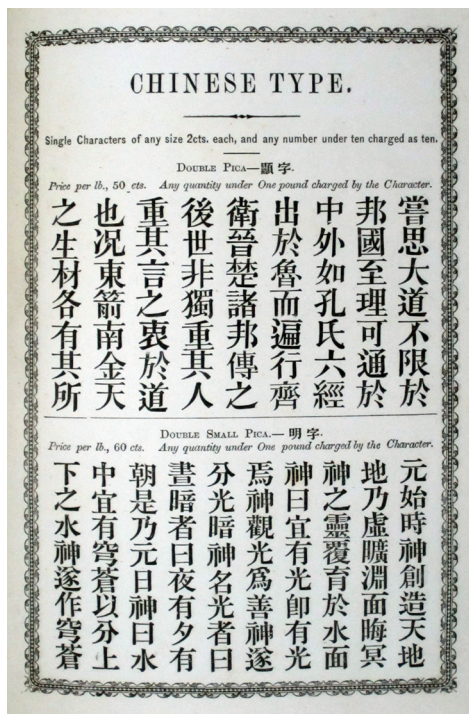 CHINESE TYPE.
Single Characters of any size 2cts. each, and any number under ten charged as ten.
DOUBLE PICA—顯字.
Price per lb., 50 cts. Any quantity under One pound charged by the Character.
嘗思大道不限於
邦國至理可通於
中外如孔氏六經
出於魯而遍行齊
衛晉楚諸邦傳之
後世非獨重其人
重其言之衷於道
也况東箭南金天
之生材各有其所
DOUBLE SMALL PICA.—明字.
Price per lb., 60 cts. Any quantity under One pound charged by the Character.
元始時神創造天地
地乃虛曠淵面晦冥
神之靈覆育於水面
神曰宜有光卽有光
焉神觀光爲善神遂
分光暗神名光者曰
晝暗者曰夜有夕有
朝是乃元日神曰水
中宜有穹蒼以分上
下之水神遂作穹蒼